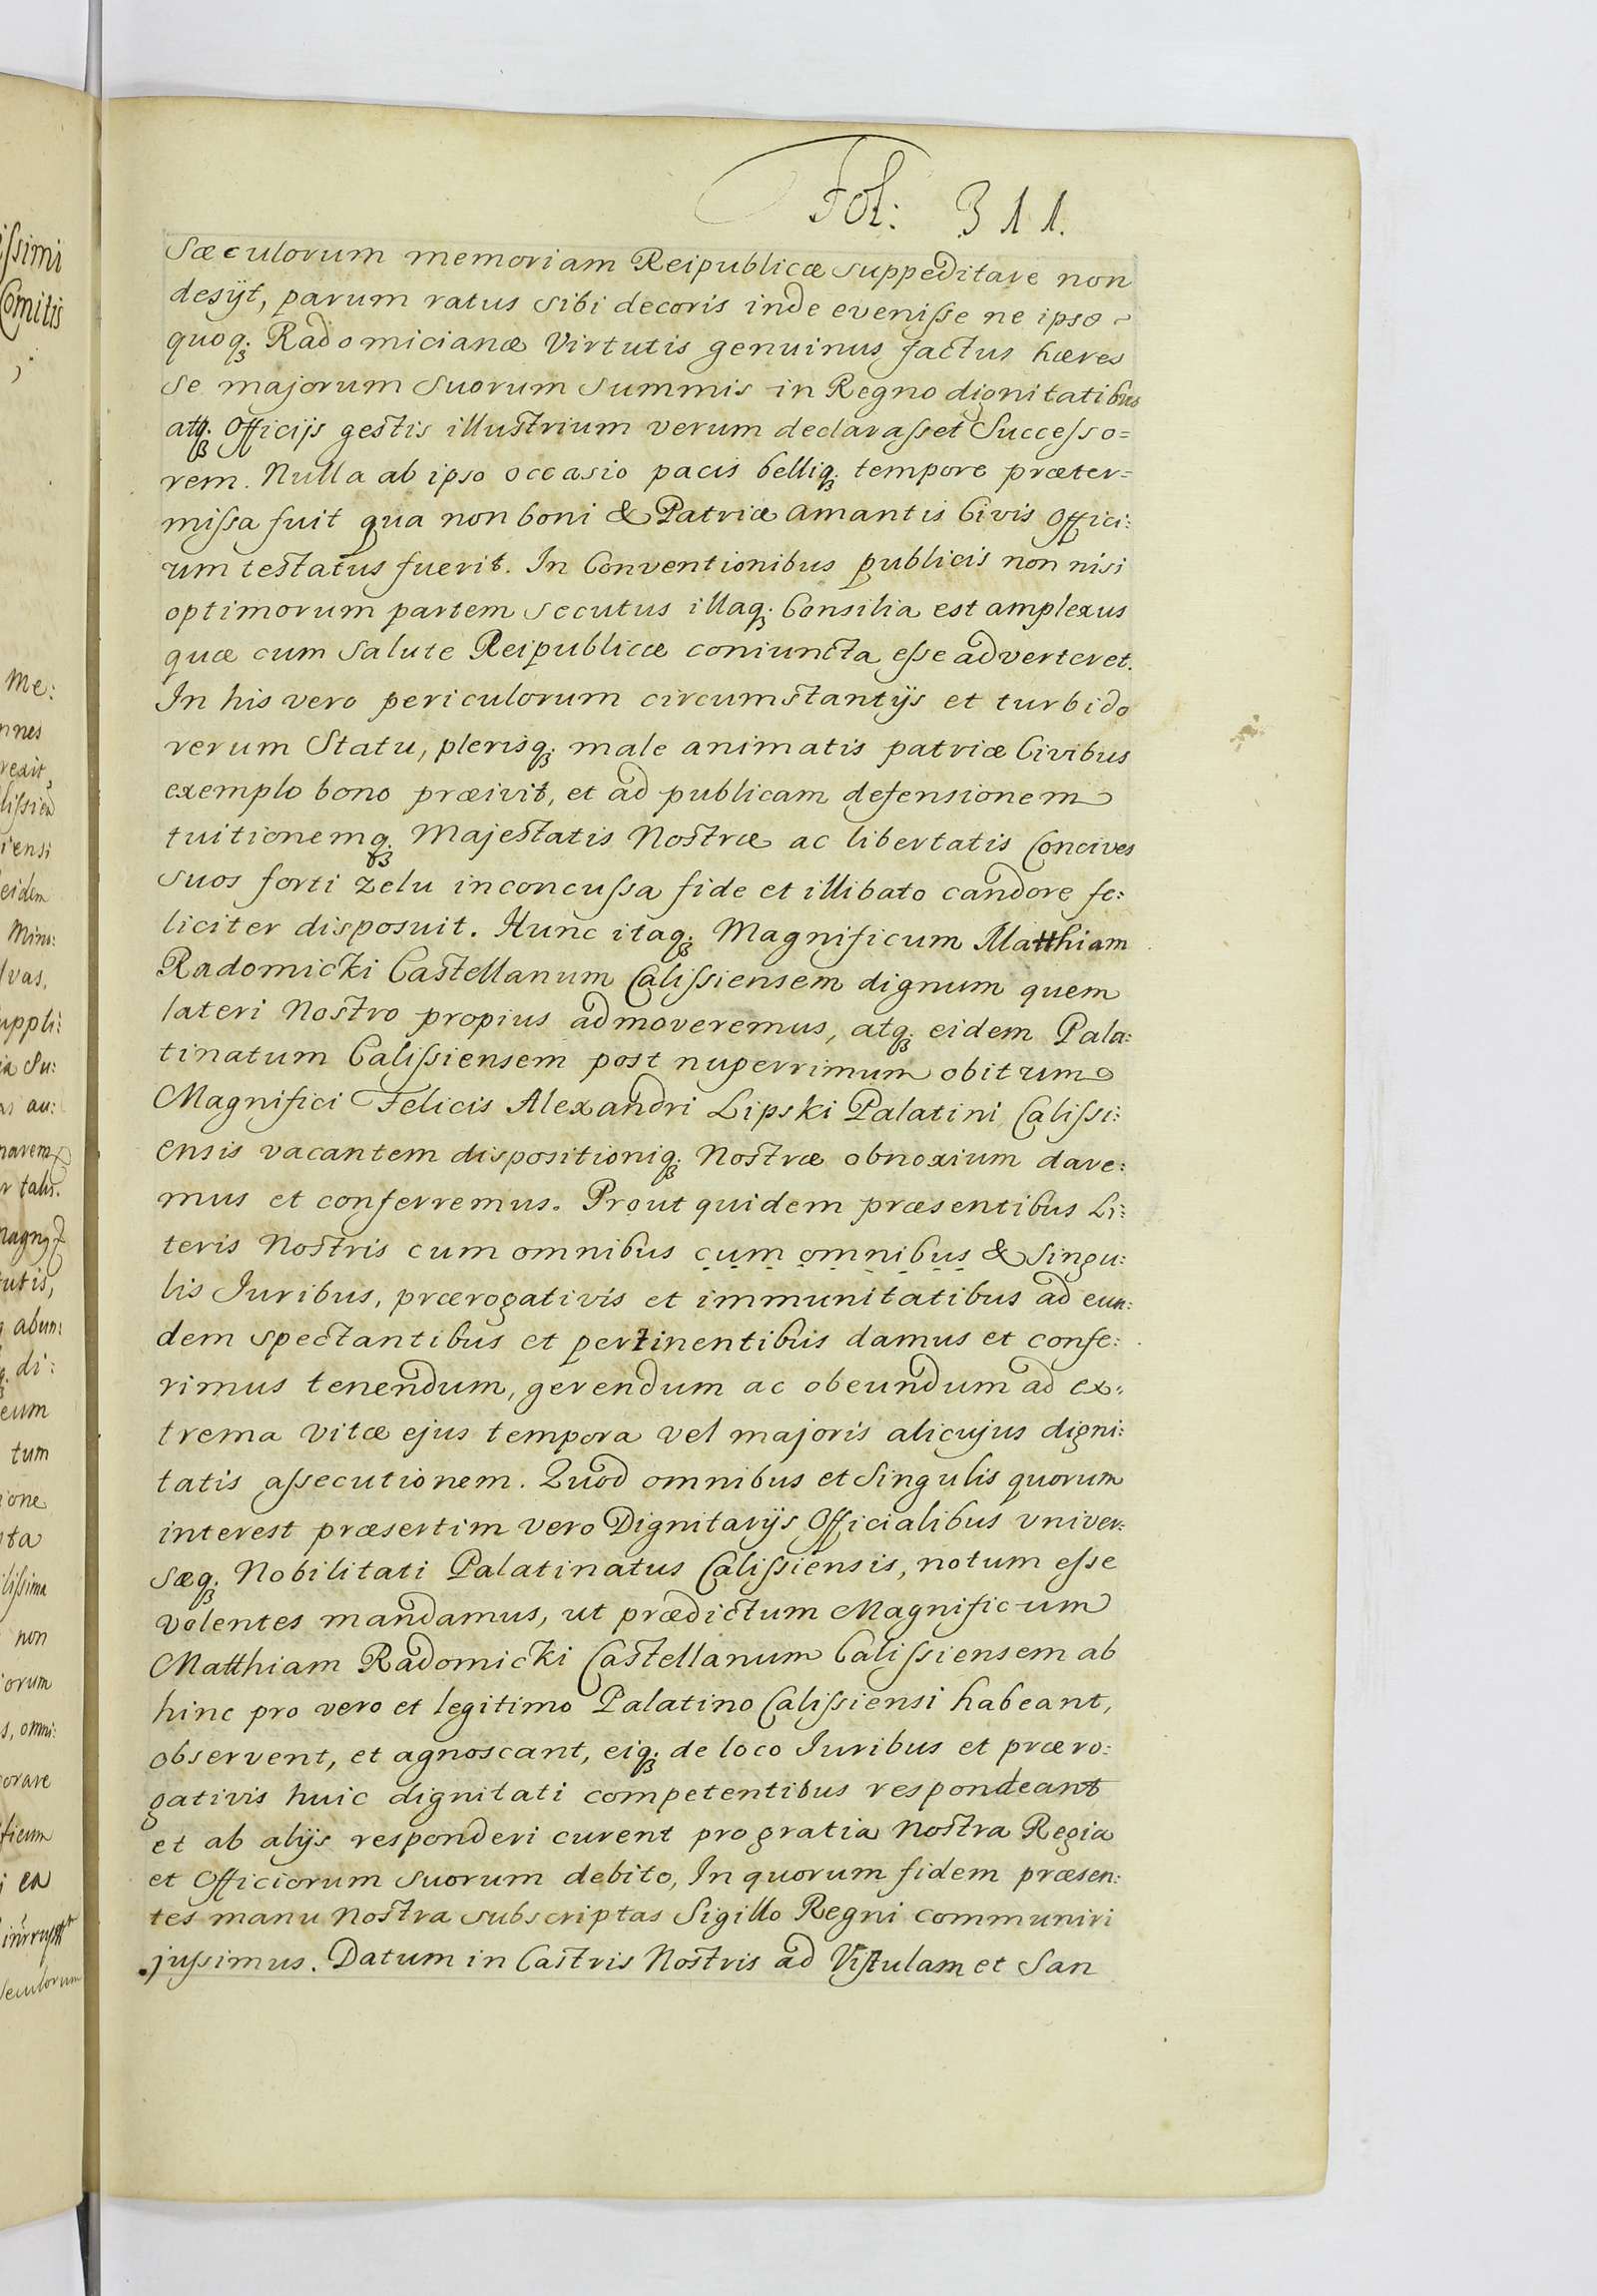 Fol: 311.
Sæculorum memoriam Reipublicæ suppeditare non
desÿt, parum ratus sibi decoris inde evenisse ne ipse
quoq; Radomicianæ Virtutis genuinus factus hæres
se majorum Suorum Summis in Regno dignitatibus
atq; Officijs gestis illustrium verum declarasset Successo=
rem. Nulla ab ipso occasio pacis belliq; tempore præter=
missa fuit qua non boni & Patriæ amantis Civis offici:
um testatus fuerit. In Conventionibus publicis non nisi
optimorum partem secutus illaq; Consilia est amplexus
quæ cum Salute Reipublicæ coniuncta esse adverteret.
In his vero periculorum circumstantijs et turbido
rerum Statu, plerisq; male animatis patriæ Civibus
exemplo bono præivit, et ad publicam defensionem
tuitionemq; Majestatis Nostræ ac libertatis Concives
suos forti zelu inconcussa fide et illibato candore fe:
liciter disposuit. Hunc itaq; Magnificum Matthiam
Radomicki Castellanum Calissiensem dignum quem
lateri Nostro propius admoveremus, atq; eidem Pala:
tinatum Calissiensem post nuperrimum obitum
Magnifici Felicis Alexandri Lipski Palatini Calissi:
ensis vacantem dispositioniq; Nostræ obnoxium dare:
mus et conferremus. Prout quidem præsentibus Li:
teris Nostris cum omnibus cum omnibus & Singu:
lis Juribus, prærogativis et immunitatibus ad eun:
dem spectantibus et pertinentibus damus et confe:
rimus tenendum, gerendum ac obeundum ad ex:
trema vitæ ejus tempora vel majoris alicujus digni:
tatis assecutionem. Quod omnibus et Singulis quorum
interest præsertim vero Dignitarijs Officialibus vniver:
sæq; Nobilitati Palatinatus Calissiensis, notum esse
volentes mandamus, ut prædictum Magnificum
Matthiam Radomicki Castellanum Calissiensem ab
hinc pro vero et legitimo Palatino Calissiensi habeant,
observent, et agnoscant, eiq; de loco Juribus et præro:
gativis huic dignitati competentibus respondeant
et ab alijs responderi curent pro gratia Nostra Regia
et Officiorum suorum debito, In quorum fidem præsen:
tes manu Nostra subscriptas Sigillo Regni communiri
jussimus. Datum in Castris Nostris ad Vistulam et San